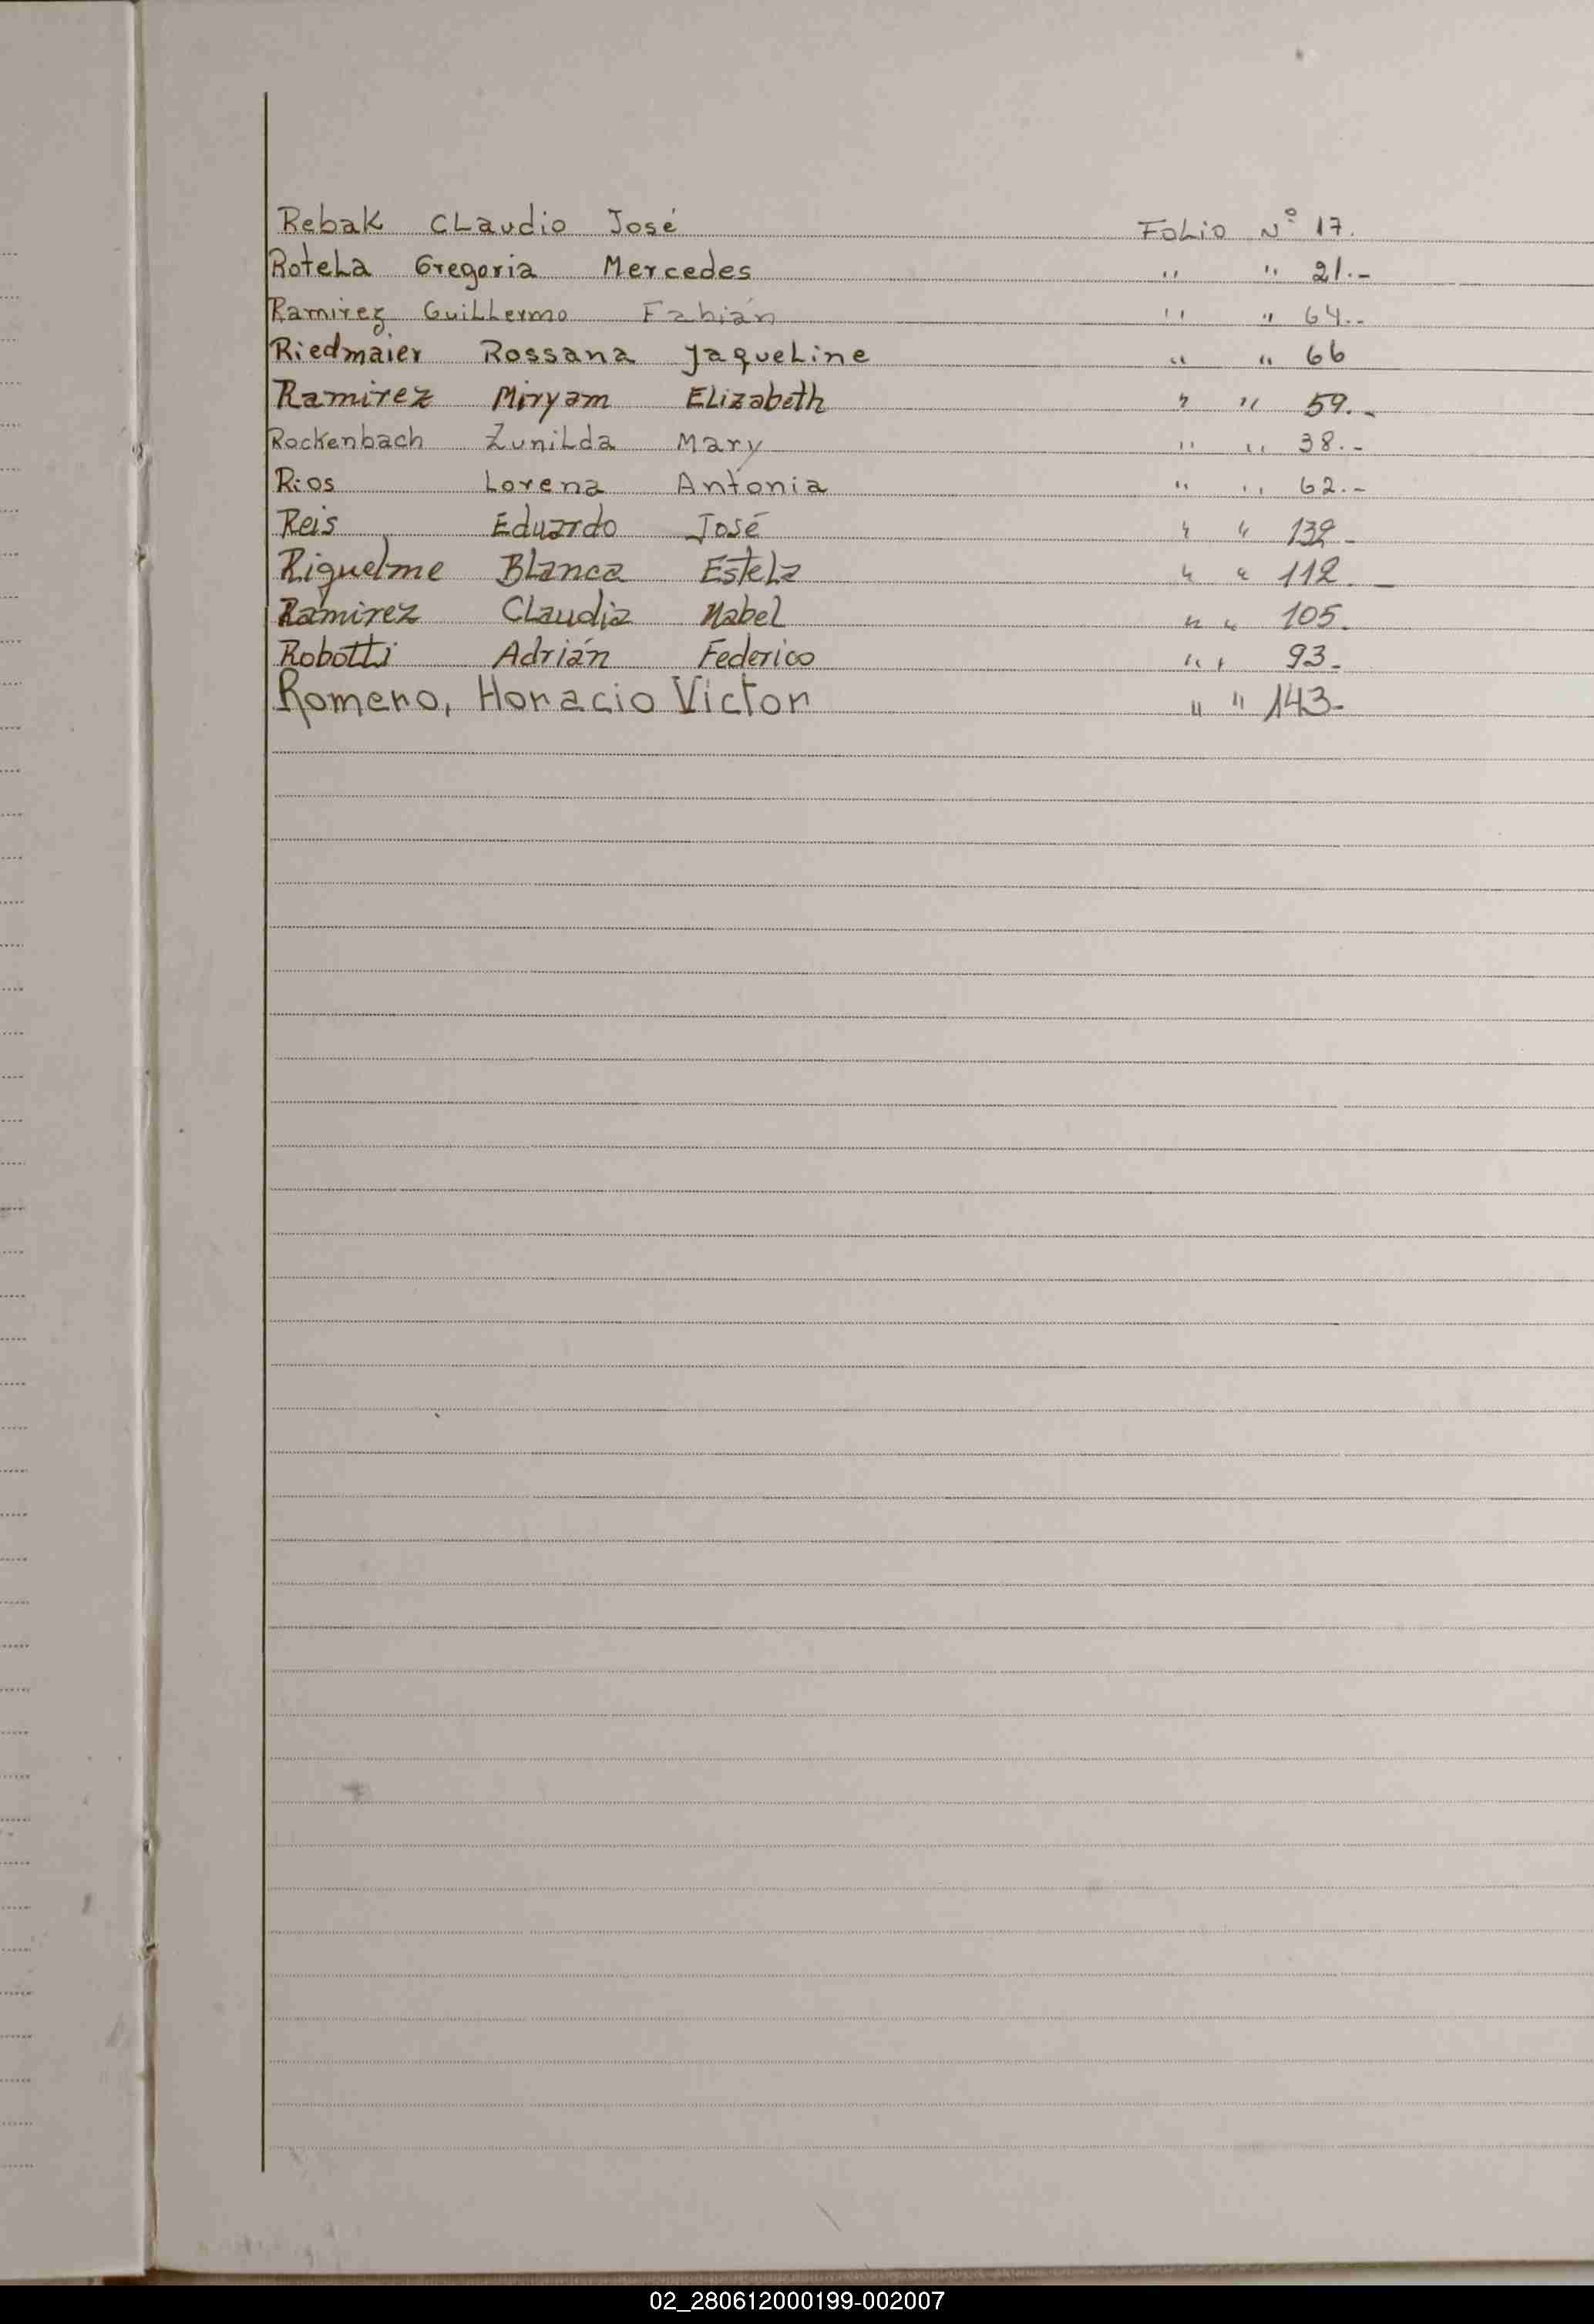 Rebak Claudio José Folio Nº 17.
Rotela Gregoria Mercedes " " 21.-
Ramirez Guillermo Fabián " " 64.-
Riedmaier Rossana Jaqueline " " 66
Ramirez Miryam Elizabeth " " 59.-
Rockenbach Zunilda Mary " " 38.-
Rios Lorena Antonia " " 62.-
Reis Eduardo José " " 132-
Riquelme Blanca Estela " " 112.-
Ramirez Claudia Mabel " " 105.
Robotti Adrián Federico " " 93.-
Romero, Horacio Victor " " 143-
02_280612000199-002007